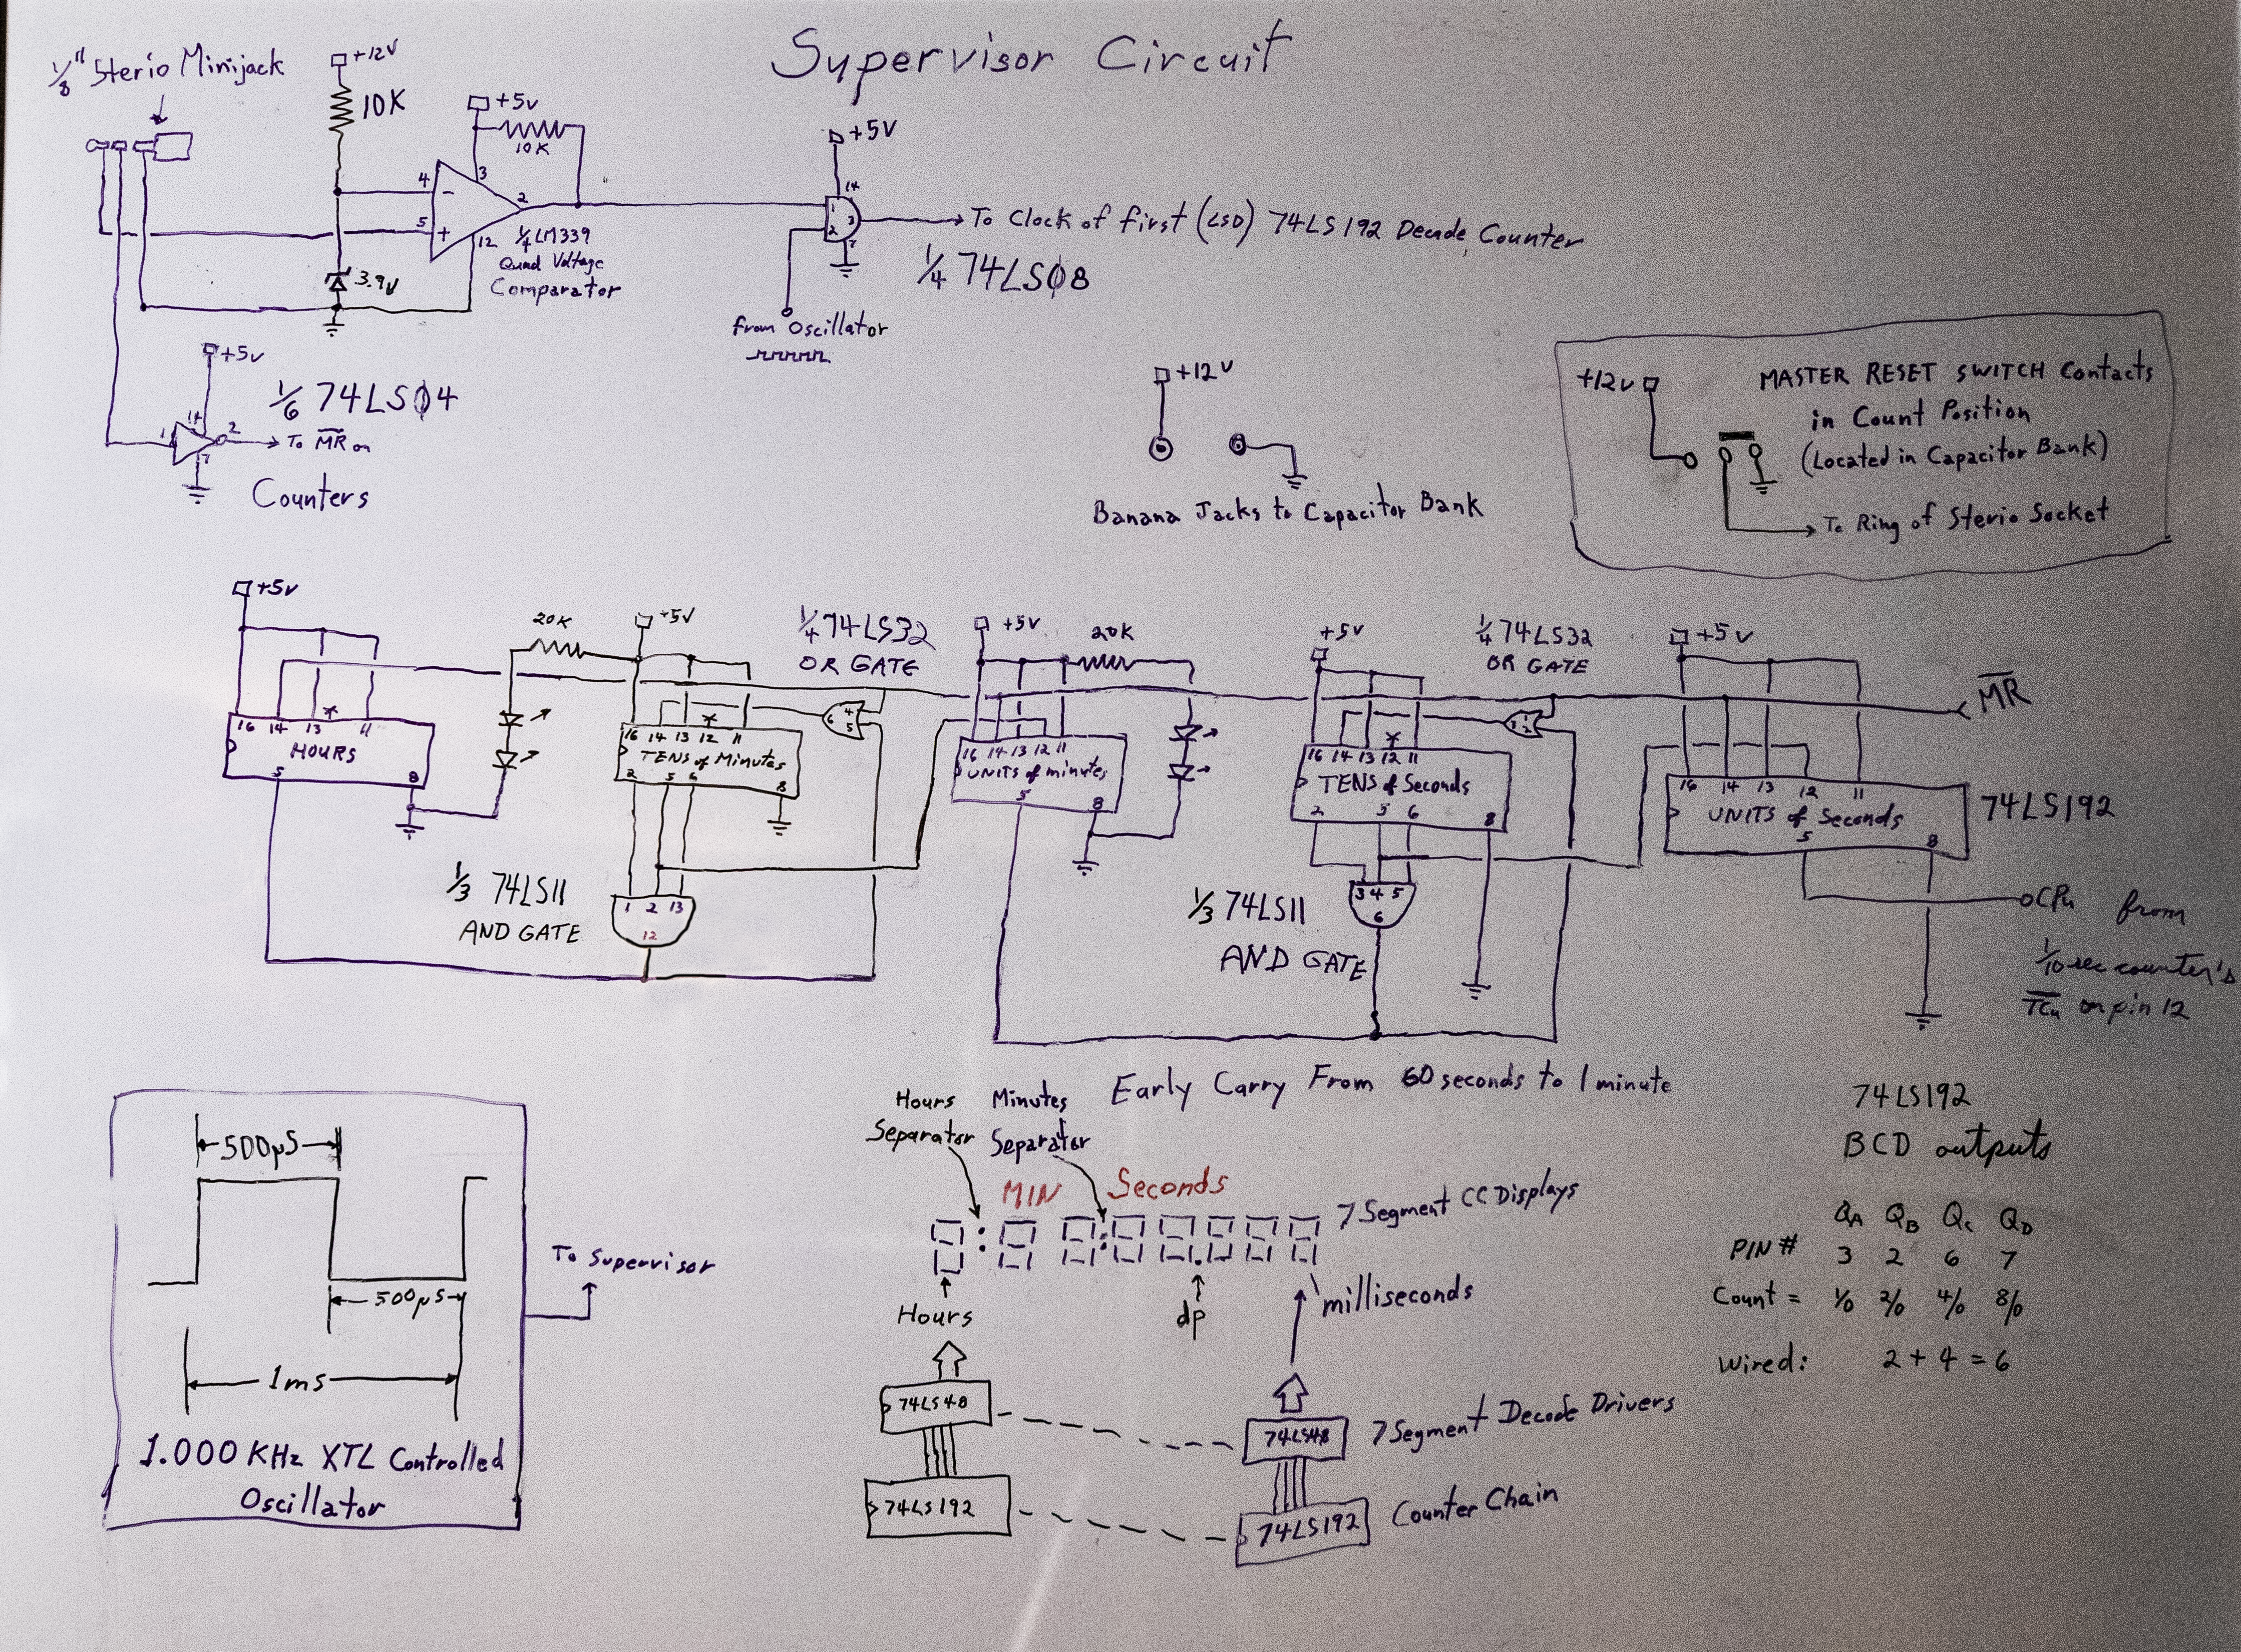 Supervisor Circuit
1/8" Sterio Minijack
+12V
10K
+5v
10K
4
-
3
2
5
+
12
1/4 LM339
Quad Voltage
Comparator
3.9V
+5V
14
1
2
3
7
To Clock of first (LSD) 74LS192 Decade Counter
1/4 74LS08
from Oscillator
+5v
1/6 74LS04
14
1
2
7
To MR on
Counters
+12V
Banana Jacks to Capacitor Bank
+12v
MASTER RESET SWITCH Contacts
in Count Position
(Located in Capacitor Bank)
To Ring of Sterio Socket
+5v
20K
+5V
1/4 74LS32
OR GATE
+5V
20K
+5V
1/4 74LS32
OR GATE
+5V
MR
16 14 13 * 11
HOURS
5 8
16 14 13 * 12 11
TENS of Minutes
2 5 6 8
6 4 5
16 14 13 12 11
UNITS of minutes
5 8
16 14 13 * 12 11
TENS of Seconds
2 5 6 8
3 1 2
16 14 13 12 11
UNITS of Seconds
5 8
74LS192
1/3 74LS11
AND GATE
1 2 13
12
1/3 74LS11
AND GATE
3 4 5
6
CPu from
1/10 sec counter's
TCu on pin 12
Early Carry From 60 seconds to 1 minute
Hours
Separator
Minutes
Separator
MIN
Seconds
7 Segment CC Displays
Hours
dp
milliseconds
74LS48
74LS48
7 Segment Decode Drivers
74LS192
74LS192
Counter Chain
500µS
500µS
1ms
1.000 KHz XTL Controlled
Oscillator
To Supervisor
74LS192
BCD outputs
QA QB QC QD
PIN # 3 2 6 7
Count = 1/0 2/0 4/0 8/0
Wired: 2 + 4 = 6